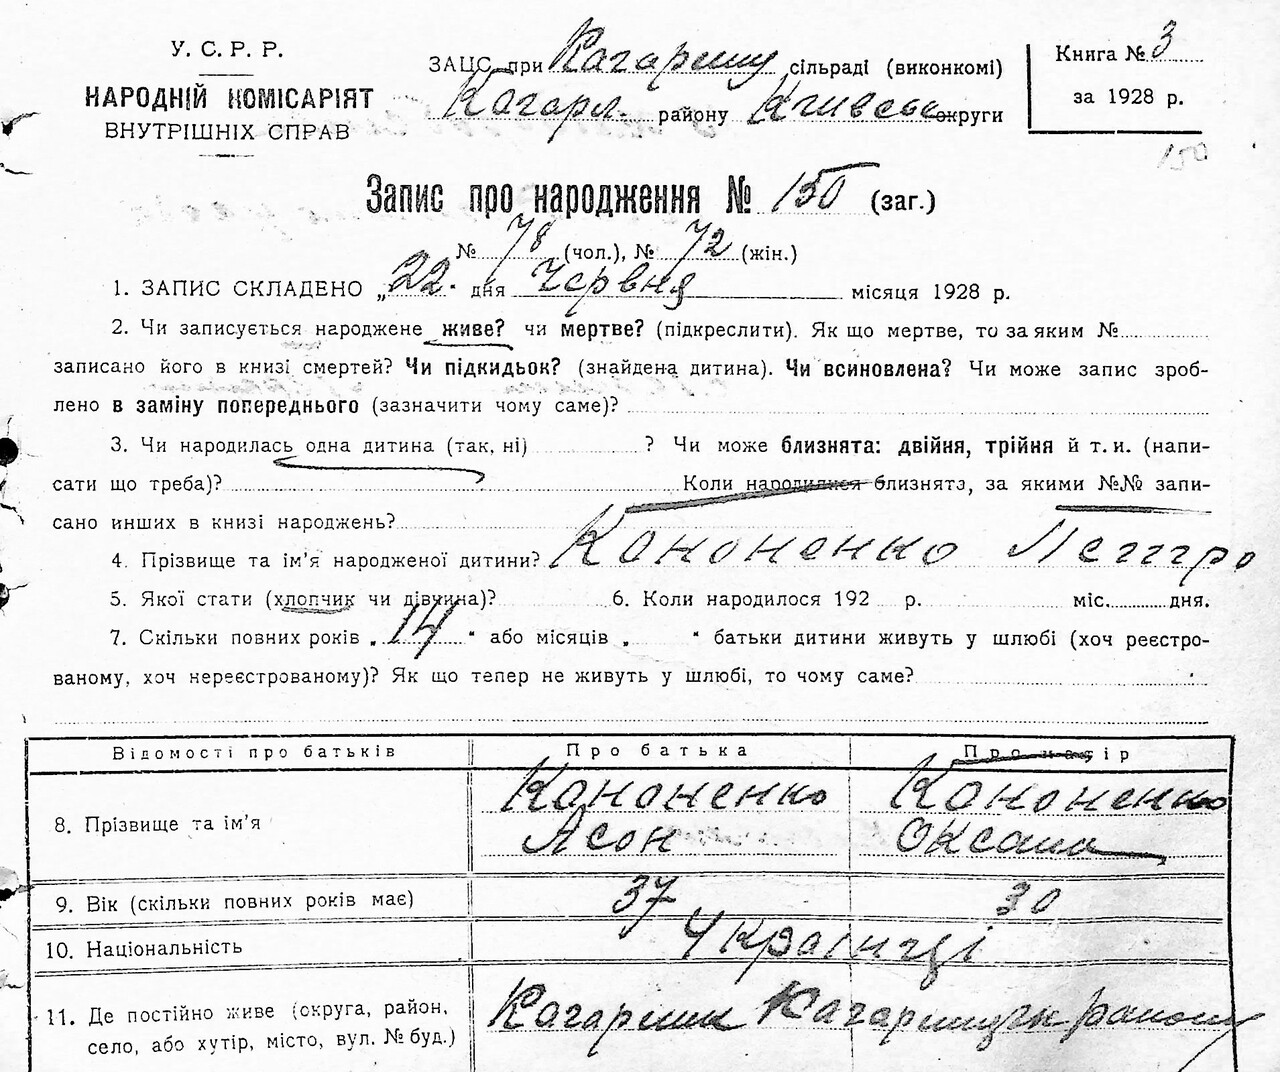 У. С. Р. Р.
НАРОДНІЙ КОМІСАРІЯТ
ВНУТРІШНІХ СПРАВ
ЗАЦС при Кагарлику сільраді (виконкомі)
Кагарл. району Київськ округи
Книга № 3
за 1928 р.
150
Запис про народження № 150 (заг.)
№ 78 (чол.), № 72 (жін.)
1. ЗАПИС СКЛАДЕНО „22" дня Червня місяця 1928 р.
2. Чи записується народжене живе? чи мертве? (підкреслити). Як що мертве, то за яким №
записано його в книзі смертей? Чи підкидьок? (знайдена дитина). Чи всиновлена? Чи може запис зроб-
лено в заміну попереднього (зазначити чому саме)?
3. Чи народилась одна дитина (так, ні) ? Чи може близнята: двійня, трійня й т. и. (напи-
сати що треба)? Коли народилися близнята, за якими №№ запи-
сано инших в книзі народжень?
4. Прізвище та ім'я народженої дитини? Кононенко Петро
5. Якої стати (хлопчик чи дівчина)? 6. Коли народилося 192 р. міс. дня.
7. Скільки повних років „14" або місяців „ " батьки дитини живуть у шлюбі (хоч реєстро-
ваному, хоч нереєстрованому)? Як що тепер не живуть у шлюбі, то чому саме?
Відомості про батьків Про батька Про матір
8. Прізвище та ім'я Кононенко Кононенко
Ясон Оксана
9. Вік (скільки повних років має) 37 30
10. Національність Українці
11. Де постійно живе (округа, район,
село, або хутір, місто, вул. № буд.) Кагарлик Кагарлицьк району